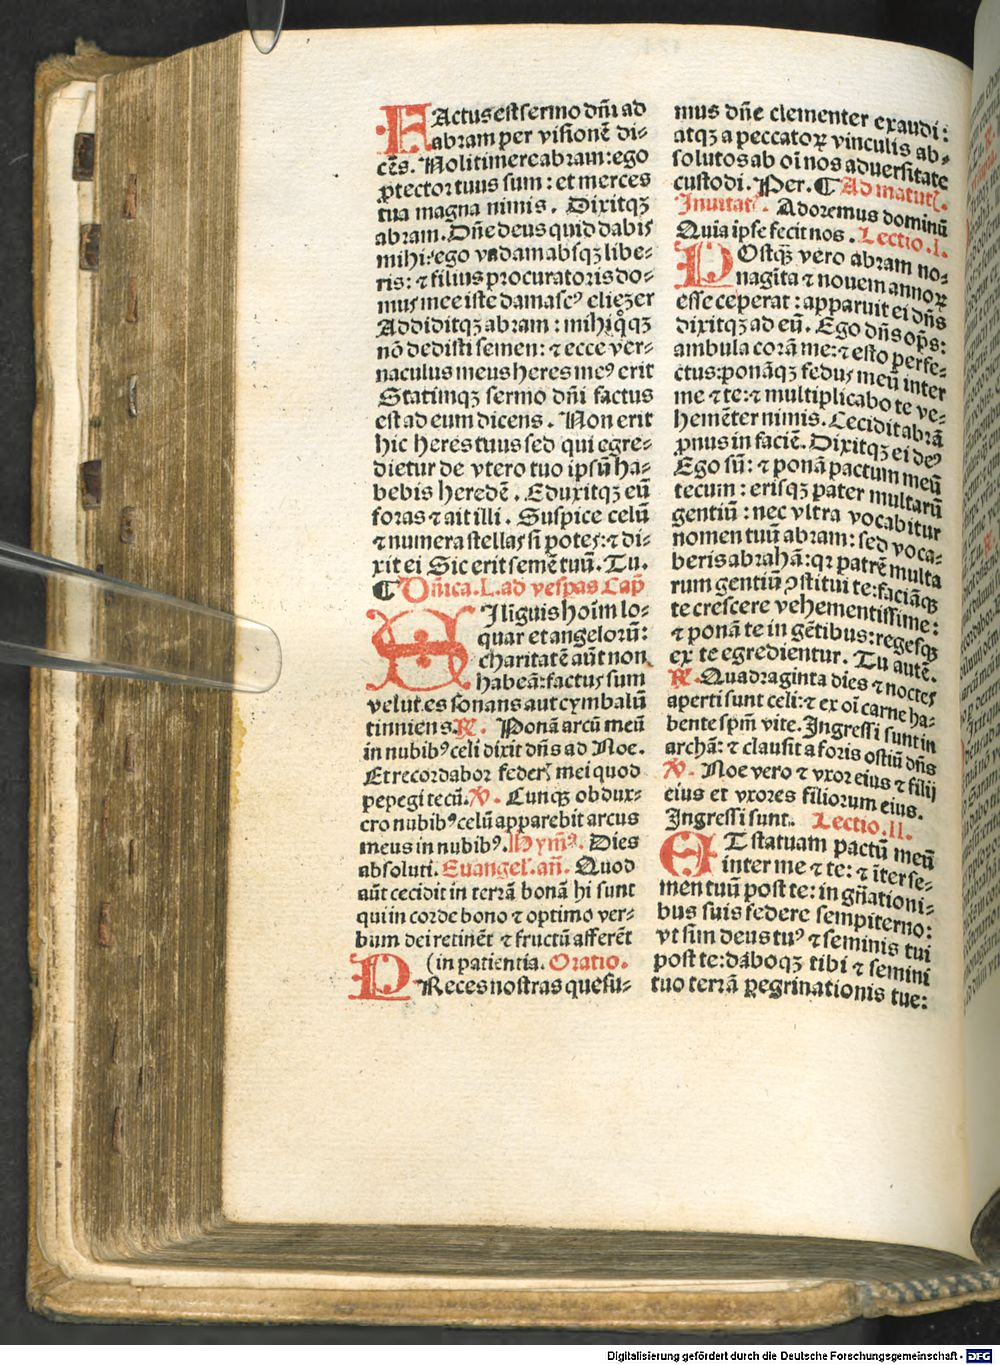 FActus est sermo dñi ad
abram per visionē di⸗
cēs. Noli timere abram: ego
ꝓtector tuus sum: et merces
tua magna nimis. Dixitqꝫ
abram. Dñe deus quid dabis
mihi: ego vadam absqꝫ libe⸗
ris: ⁊ filius procuratoris do⸗
mus mee iste damascꝰ eliezer
Addiditqꝫ abram: mihi
nō dedisti semen: ⁊ ecce ver⸗
naculus meus heres meꝰ erit
Statimqꝫ sermo dñi factus
est ad eum dicens. Non erit
hic heres tuus sed qui egre⸗
dietur de vtero tuo ipsū ha⸗
bebis heredē. Eduxitqꝫ eū
foras ⁊ ait illi. Suspice celū
⁊ numera stellas si potes: ⁊ di⸗
xit ei Sic erit semē tuū. Tu.
¶ Dñica. L. ad vespas Cap̄
SI liguis hoīm lo⸗
quar et angelorū:
charitatē aūt non
habeā: factus sum
velut es sonans aut cymbalū
tinniens ℟. Ponā arcū meū
in nubibꝰ celi dixit dñs ad Noe.
Et recordabor federꝭ mei quod
pepegi tecū. ℣. Cunqꝫ obdux⸗
ero nubibꝰ celū apparebit arcus
meus in nubibꝰ. Hymꝰ. Dies
absoluti. Euangel'. añ. Quod
aūt cecidit in terrā bonā hi sunt
qui in corde bono ⁊ optimo ver⸗
bum dei retinēt ⁊ fructū afferēt
(in patientia. Oratio.
PReces nostras quesu⸗
mus dñe clementer exaudi:
atqꝫ a peccatoꝝ vinculis ab⸗
solutos ab oī nos aduersitate
custodi. Per. ¶ Ad matutꝭ.
Inuitatꝭ. Adoremus dominū
Quia ipse fecit nos. Lectio. I.
POstqꝫ̄ vero abram no⸗
nagīta ⁊ nouem annoꝝ
esse ceperat: apparuit ei dñs
dixitqꝫ ad eū. Ego dñs op̄s:
ambula corā me: ⁊ esto perfe⸗
ctus: ponāqꝫ fedus meū inter
me ⁊ te: ⁊ multiplicabo te ve⸗
hemēter nimis. Cecidit abrā
ꝓnus in faciē. Dixitqꝫ ei deꝰ
Ego sū: ⁊ ponā pactum meū
tecum: erisqꝫ pater multarū
gentiū: nec vltra vocabitur
nomen tuū abram: sed voca⸗
beris abrahā: qꝛ patrē multa
rum gentiū ꝯstitui te: faciāqꝫ
te crescere vehementissime:
⁊ ponā te in gētibus: regesqꝫ
ex te egredientur. Tu autē.
℟. Quadraginta dies ⁊ noctes
aperti sunt celi: ⁊ ex oī carne ha⸗
bente spm̄ vite. Ingressi sunt in
archā: ⁊ clausit a foris ostiū dñs
℣. Noe vero ⁊ vxor eius ⁊ filij
eius et vxores filiorum eius.
Ingressi sunt. Lectio. II.
ET statuam pactū meū
inter me ⁊ te: ⁊ īter se⸗
men tuū post te: in gñationi⸗
bus suis federe sempiterno:
vt sim deus tuꝰ ⁊ seminis tui
post te: daboqꝫ tibi ⁊ semini
tuo terrā ꝑegrinationis tue:
Digitalisierung gefördert durch die Deutsche Forschungsgemeinschaft - DFG